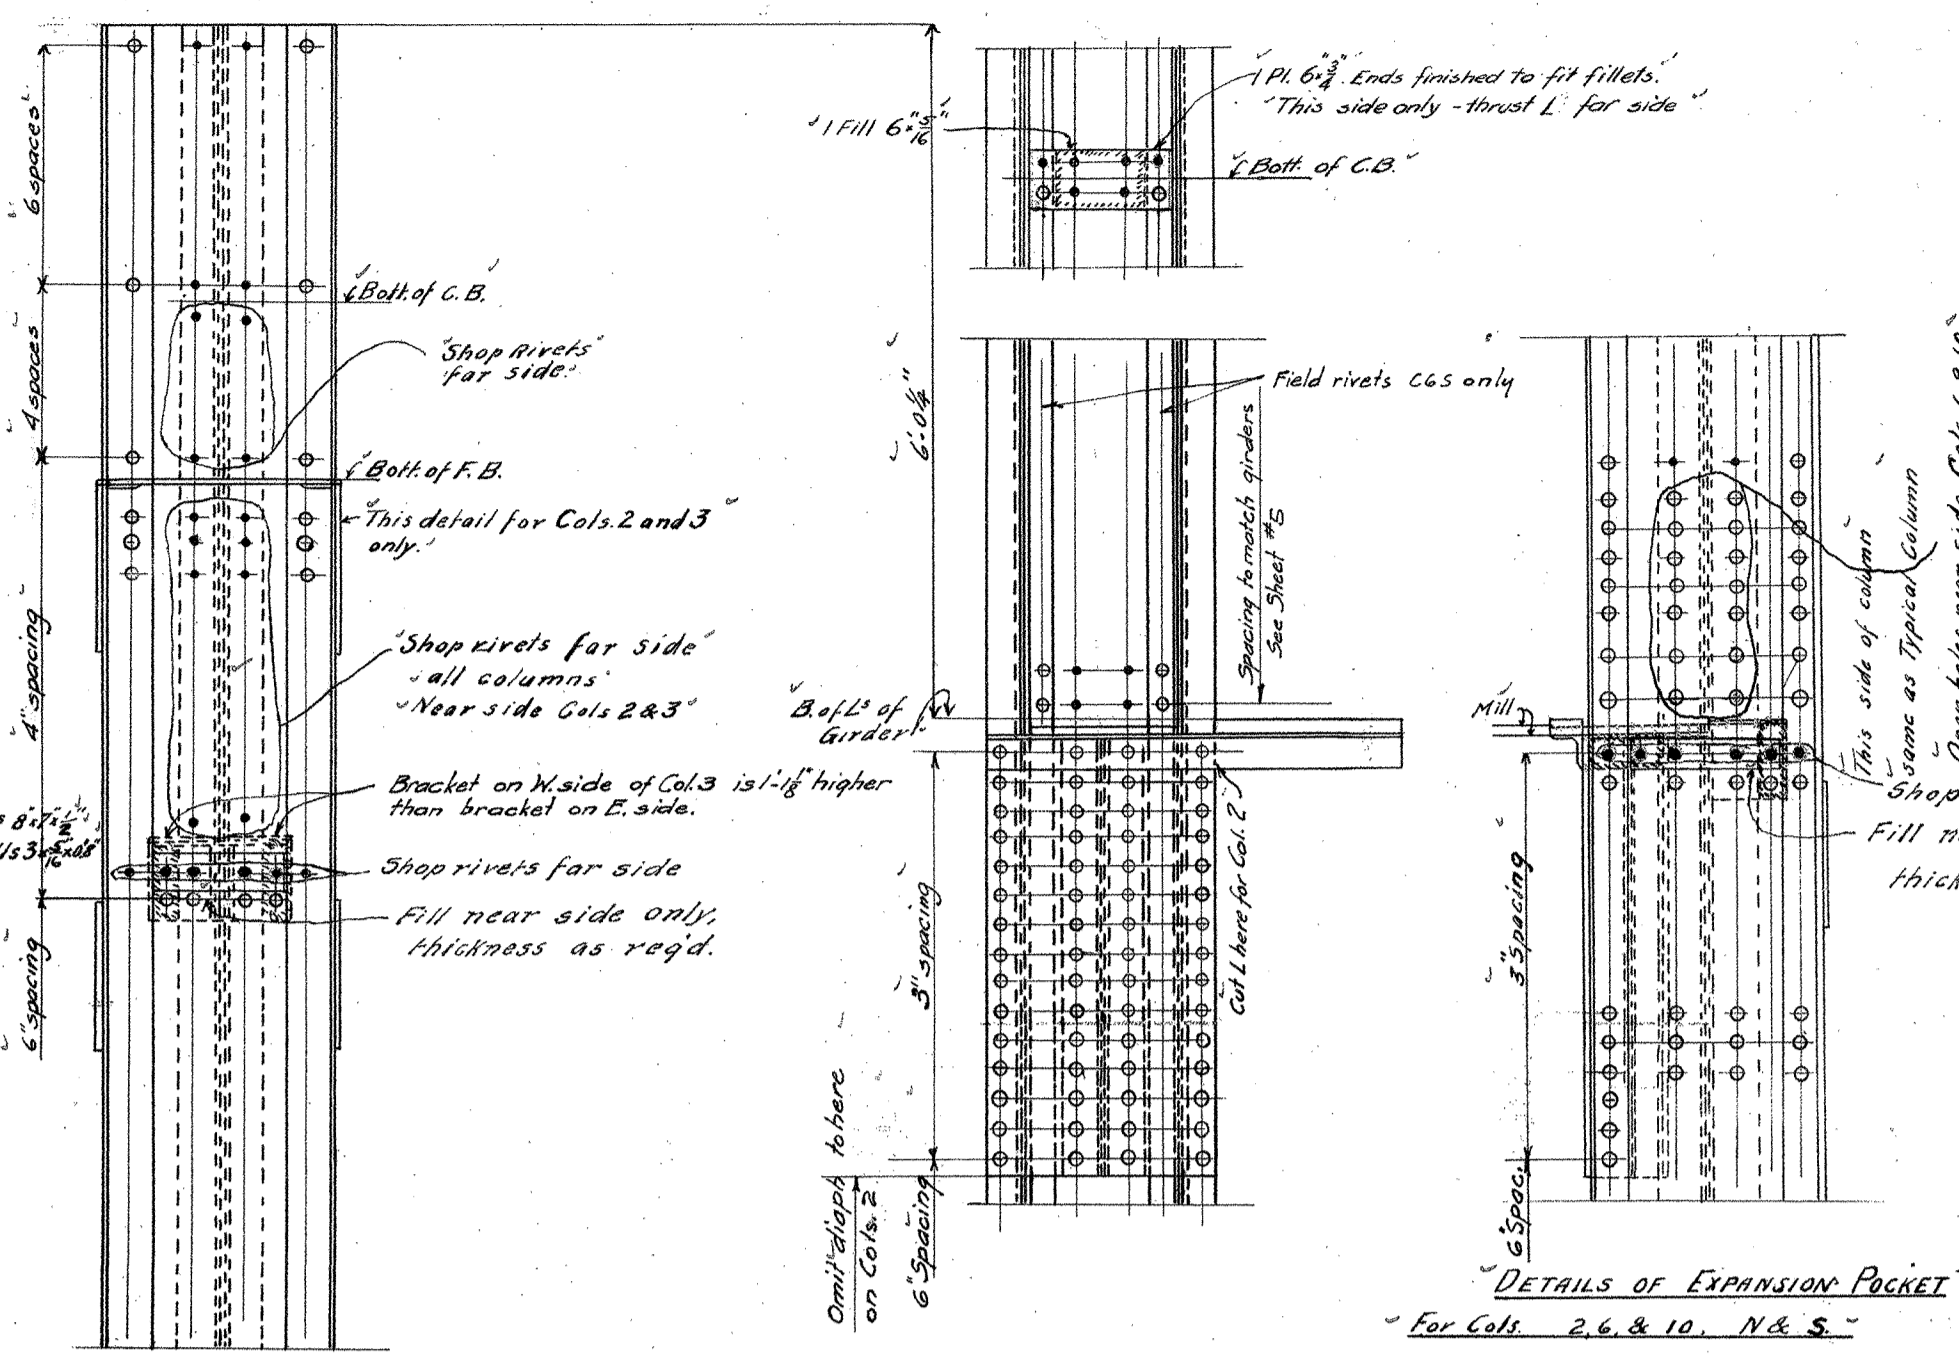 6 spaces
4 spaces
4" spacing
6" spacing
Bott. of C.B.
Shop Rivets
far side.
Bott. of F.B.
This detail for Cols. 2 and 3
only.
Shop rivets far side
all columns
Near side Cols 2 & 3
Bracket on W. side of Col. 3 is 1'-1⅛" higher
than bracket on E. side.
Shop rivets far side
Fill near side only,
thickness as req'd.
6'-0¼"
1 Fill 6"×5/16"
1 Pl. 6"×¾" Ends finished to fit fillets.
This side only - thrust L far side
Bott. of C.B.
Field rivets C6S only
Spacing to match girders
See Sheet #5
B. of Ls of
Girder
3" spacing
Cut L here for Col. 2
Omit diaph to here
on Cols. 2
6" Spacing
Mill
3" Spacing
6" Spac.
This side of column
same as Typical Column
Shop
Fill
thick
DETAILS OF EXPANSION POCKET
For Cols. 2, 6, & 10. N & S.